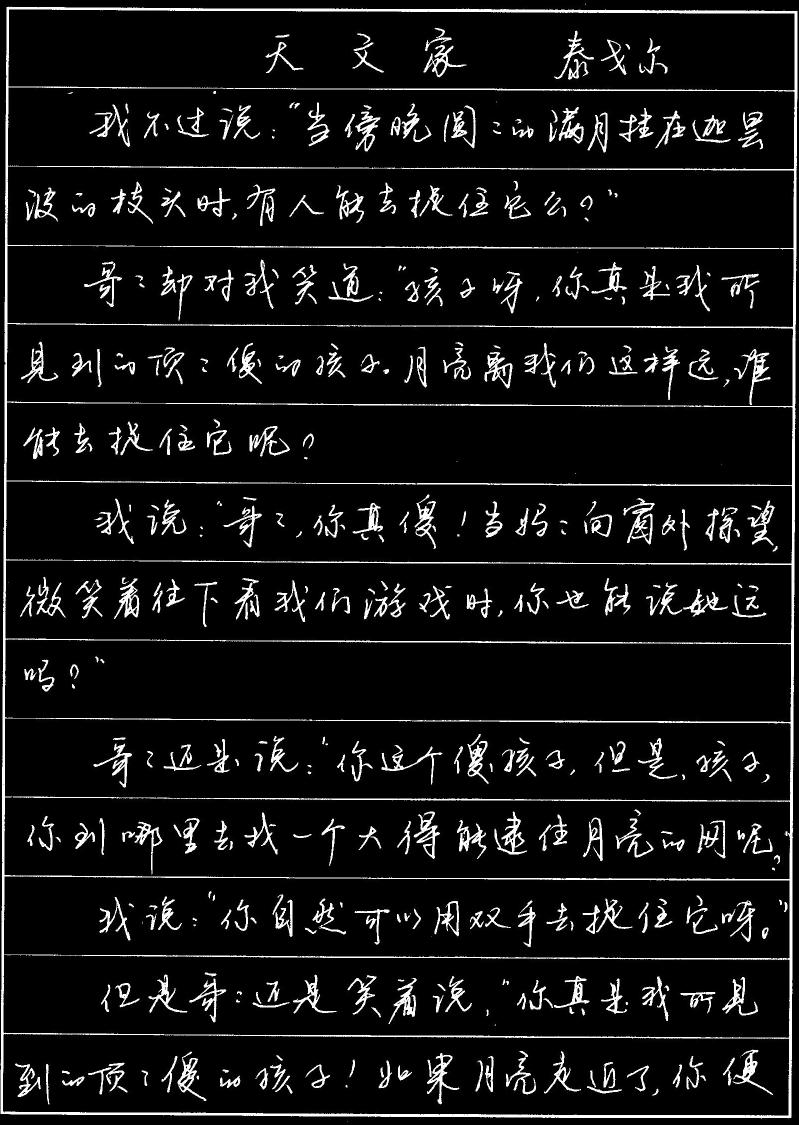 天文家 泰戈尔
我不过说:“当傍晚圆〻的满月挂在迦昙
波的枝头时,有人能去捉住它么?”
哥〻却对我笑道:“孩子呀,你真是我所
见到的顶〻傻的孩子。月亮离我们这样远,谁
能去捉住它呢?
我说:“哥〻,你真傻!当妈〻向窗外探望,
微笑着往下看我们游戏时,你也能说她远
吗?”
哥〻还是说:“你这个傻孩子,但是,孩子,
你到哪里去找一个大得能逮住月亮的网呢?”
我说:“你自然可以用双手去捉住它呀。”
但是哥〻还是笑着说,“你真是我所见
到的顶〻傻的孩子!如果月亮走近了,你便